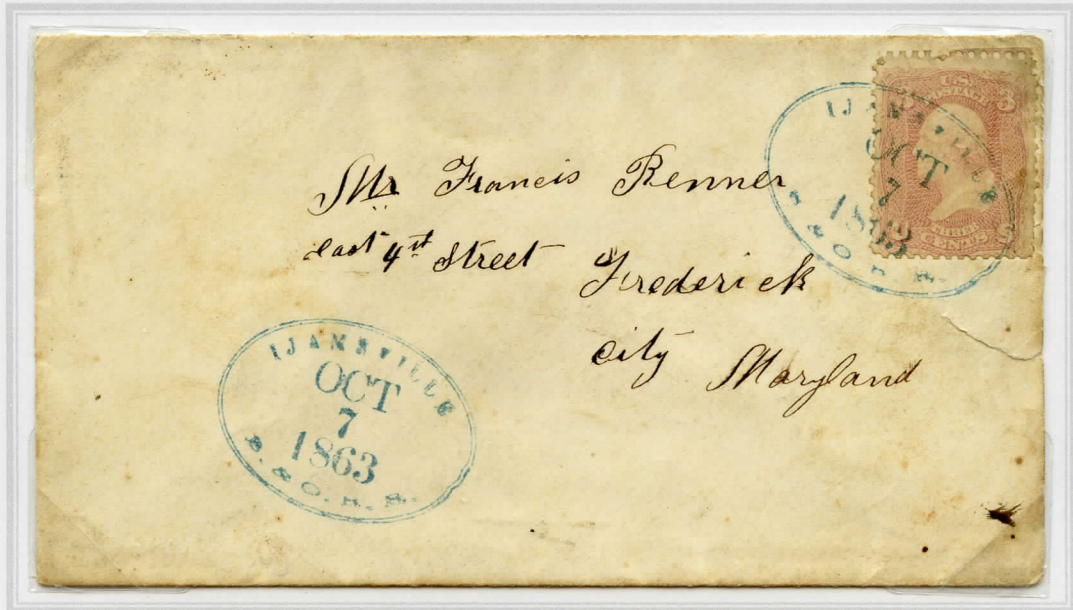 U.S.
POSTAGE
3 3
THREE
CENTS
IJAMSVILLE
OCT
7
1863
B. & O. R. R.
Mr Francis Renner
east 4st Street
Frederick
City
Maryland
IJAMSVILLE
OCT
7
1863
B. & O. R. R.